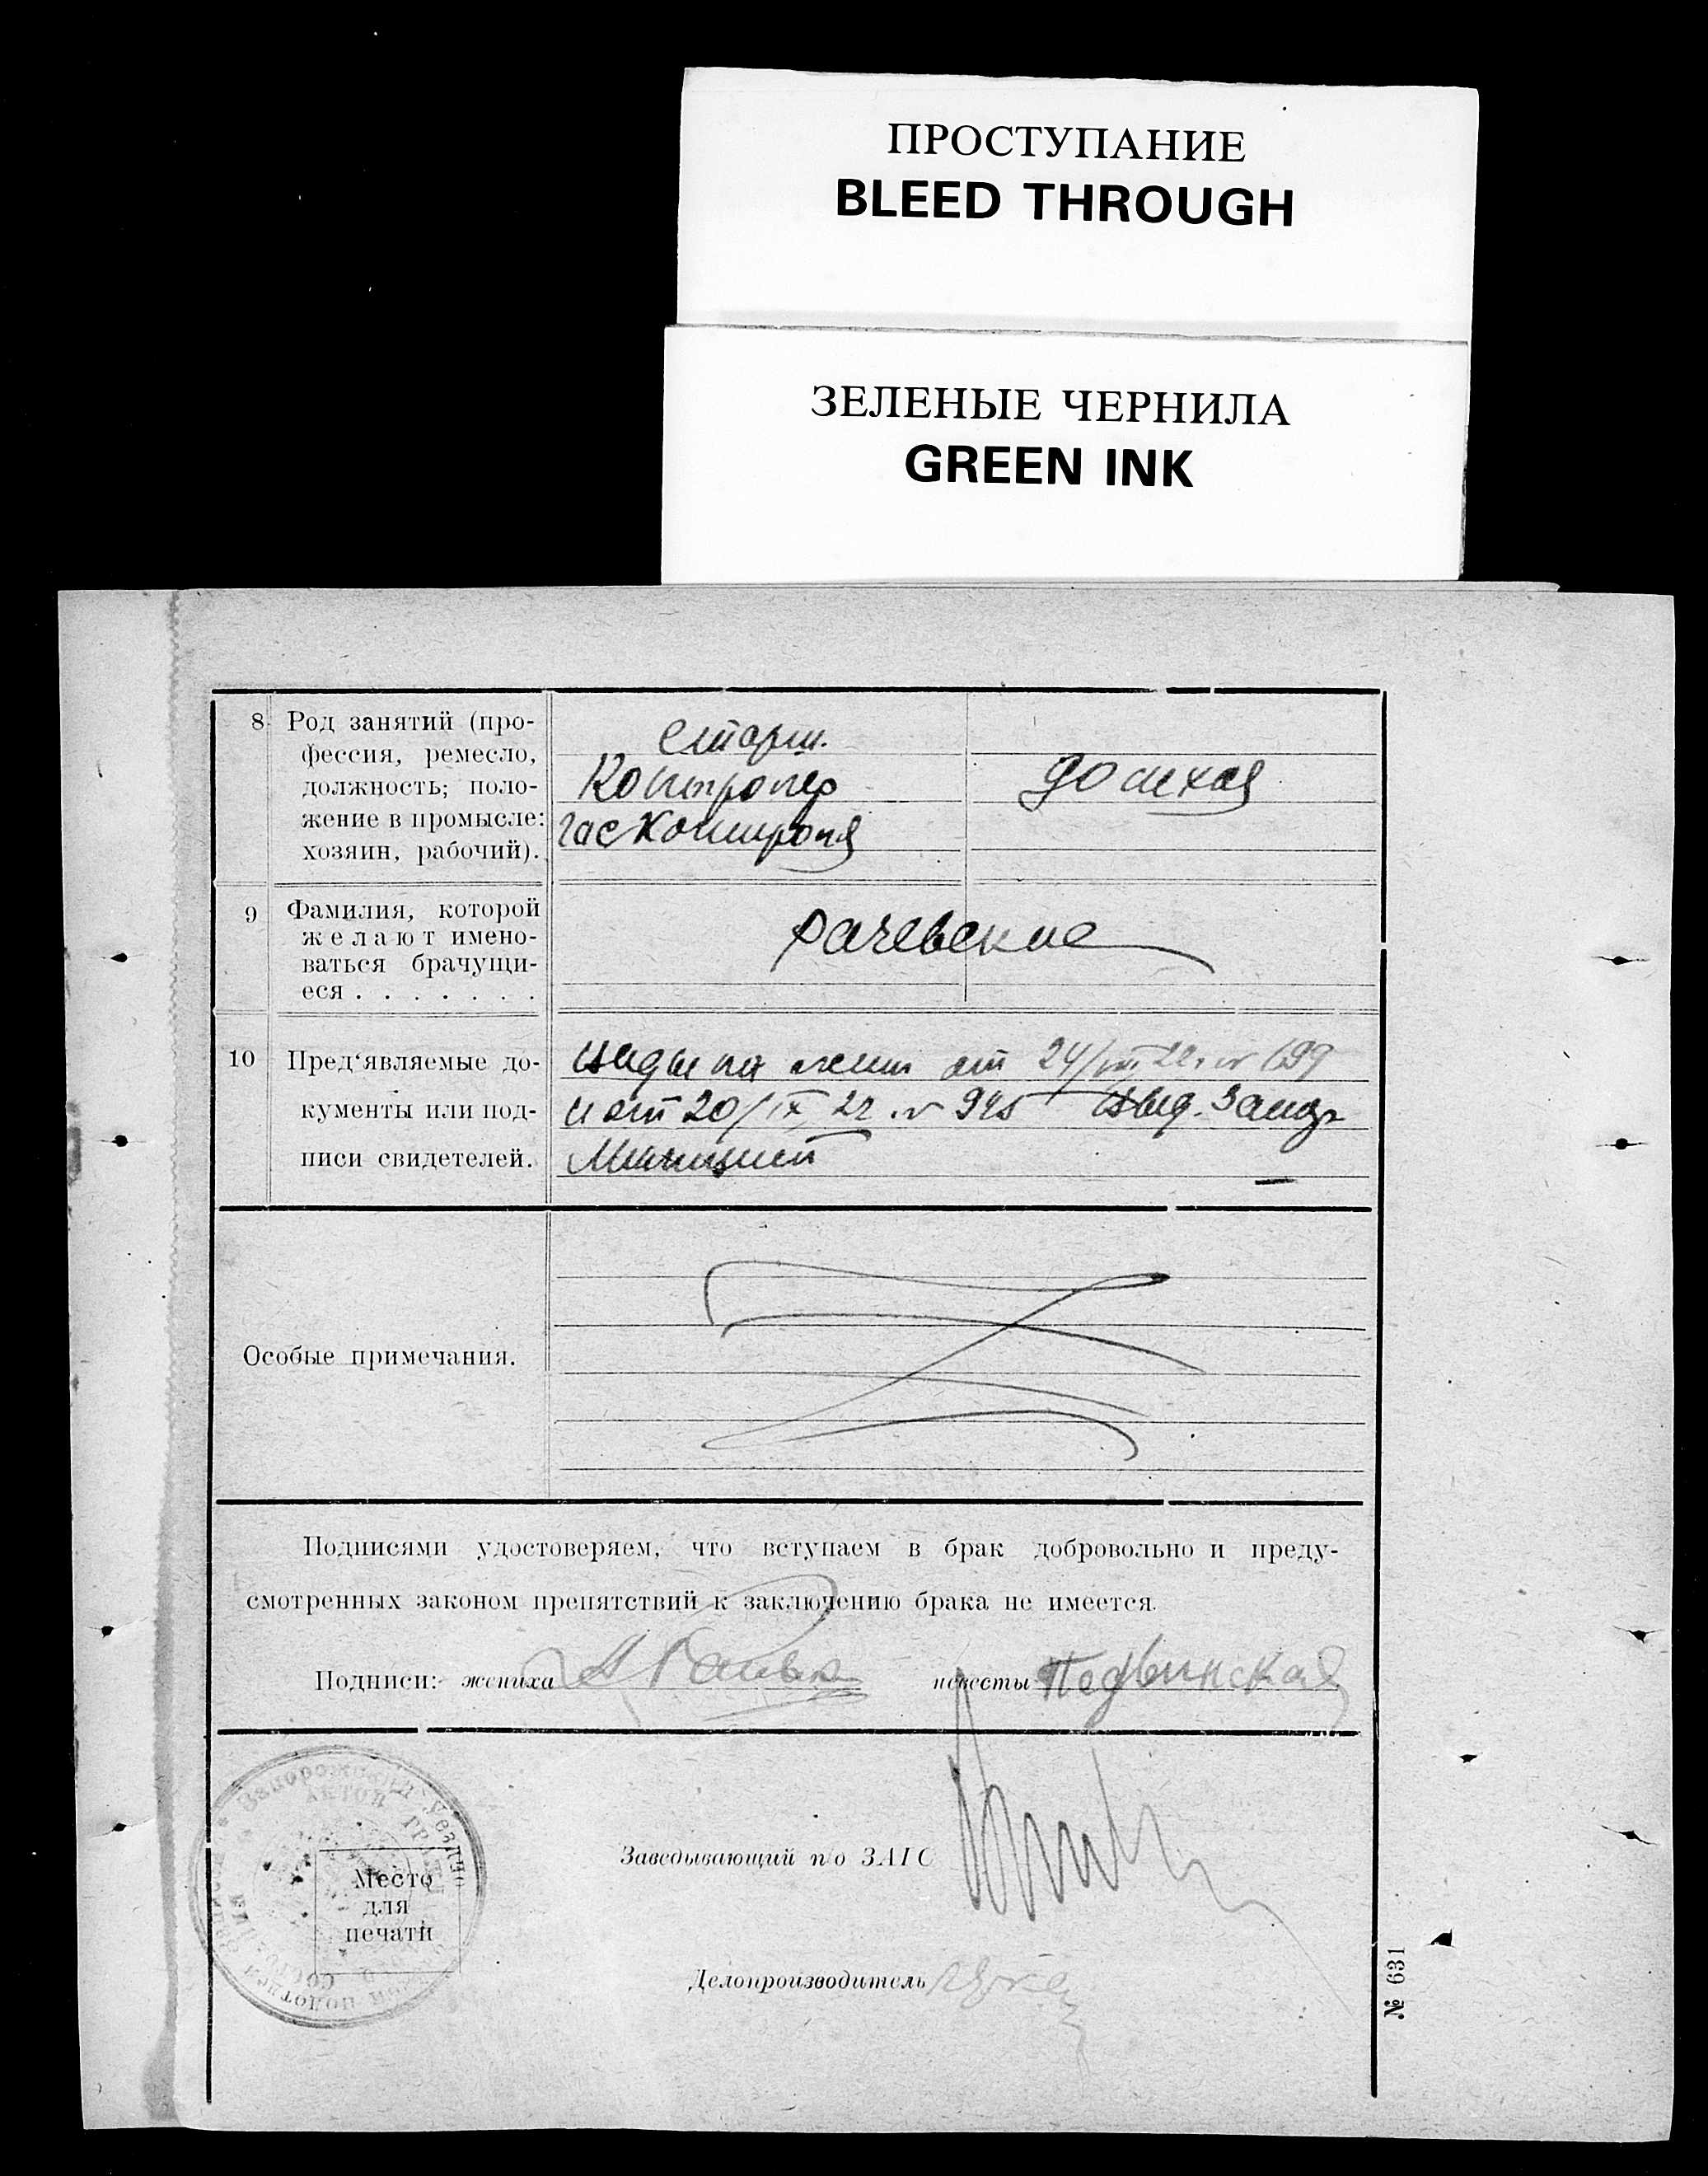 ПРОСТУПАНИЕ
BLEED THROUGH
ЗЕЛЕНЫЕ ЧЕРНИЛА
GREEN INK
8 Род занятий (про-
фессия, ремесло,
должность; поло-
жение в промысле:
хозяин, рабочий).
Старш.
Контролер
гасконтроля
9 Фамилия, которой
желают имено-
ваться брачущи-
еся . . . . . . .
Рачевские
10 Пред‘являемые до-
кументы или под-
писи свидетелей.
Виды на жит от 24/VIII 22. №
и от 20/IX 22 . №
Милицией
Особые примечания.
Подписями удостоверяем, что вступаем в брак добровольно и преду-
смотренных законом препятствий к заключению брака не имеется.
Подписи: жениха невесты Подвинская
Заведывающий п/о ЗАГС
Место
для
печати
Делопроизводитель
№ 631